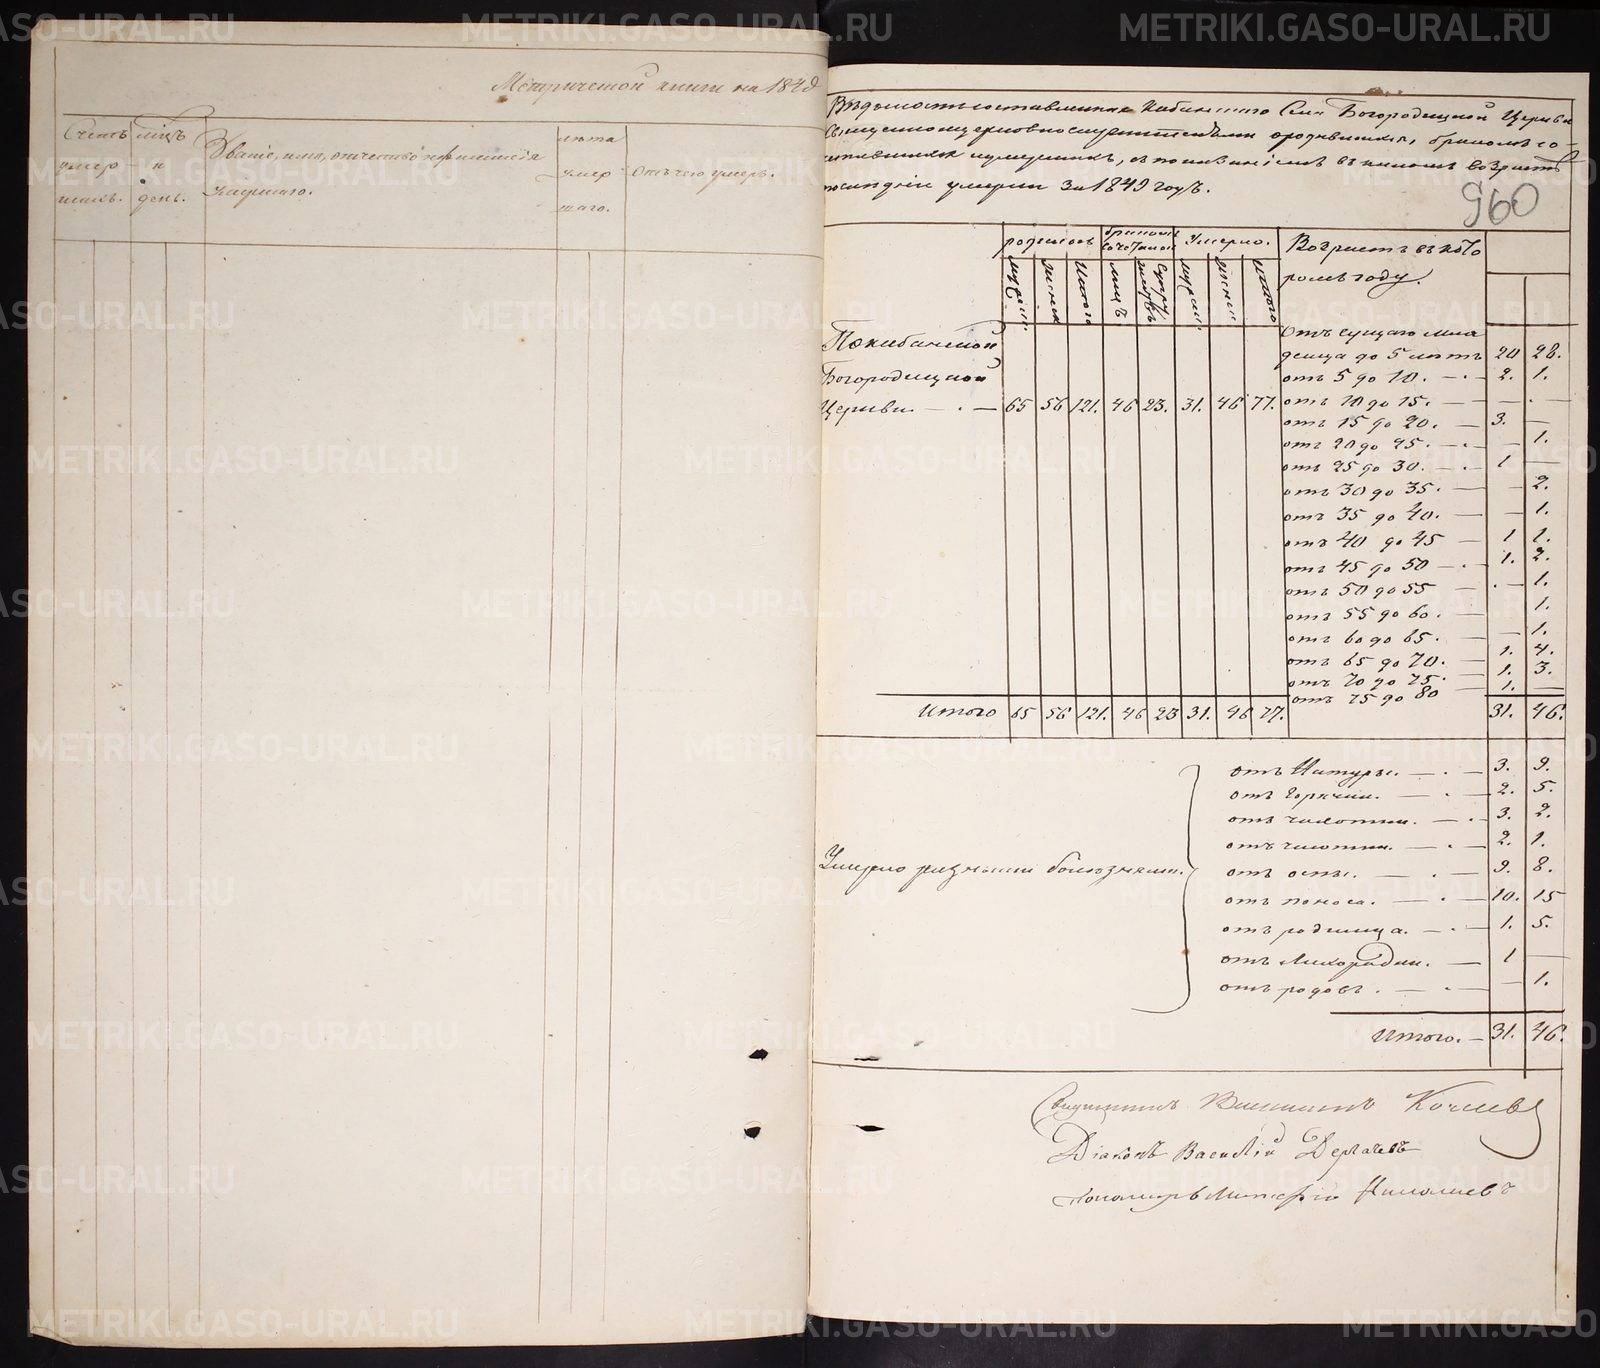 Метрической книги на 1849
Счетъ умер- шихъ.
мѣцъ и день.
Званіе, имя, отчество и фамилія умершаго.
лѣта умер шаго.
Отъ чего умеръ.
Вѣдомость составленная Кабанскаго Села Богородицкой Церкви
Священноцерковнослужителями о родившихся, бракомъ со-
четавшихся и умершихъ, съ показаніемъ въ какомъ возрастѣ
послѣдніе умерли за 1849 годъ.
960
родилось
бракомъ сочеталось
Умерло.
Возрастъ въ кото
ромъ году.
мужск.
женск
Итого
лицъ
супружествъ
мужск.
женск
Итого
По Кабанской
Богородицкой
Церкви. — . — 65 56 121. 46 23. 31. 46 77.
Отъ сущаго мла
денца до 5 лѣтъ 20 28.
отъ 5 до 10. — . — 2. 1.
отъ 10 до 15. — — . —
отъ 15 до 20. — 3. —
отъ 20 до 25. — . — — 1.
отъ 25 до 30. — . — 1 —
отъ 30 до 35. — — 2.
отъ 35 до 40. — — 1.
отъ 40 до 45 — 1 1.
отъ 45 до 50 — . — 1. 2.
отъ 50 до 55 — . — 1.
отъ 55 до 60. — 1.
отъ 60 до 65. — — 1.
отъ 65 до 70. — 1. 4.
отъ 70 до 75. — 1. 3.
отъ 75 до 80 — 1. —
Итого 65 56 121. 46 23 31. 46 77. 31. 46.
Умерло разными болѣзнями.
отъ Натуры. — . — 3. 9.
отъ Горячки. — . — 2. 5.
отъ чахотки. — . — 3. 2.
отъ — . — 2. 1.
отъ оспы. — . — 9. 8.
отъ поноса. — . — 10. 15
отъ родимца. — . — 1. 5.
отъ Лихорадки. — 1 —
отъ родовъ. — . — — 1.
Итого. — 31. 46.
Священникъ
Діаконъ Василій Дергачевъ
Пономарь Николаевъ
METRIKI.GASO-URAL.RU